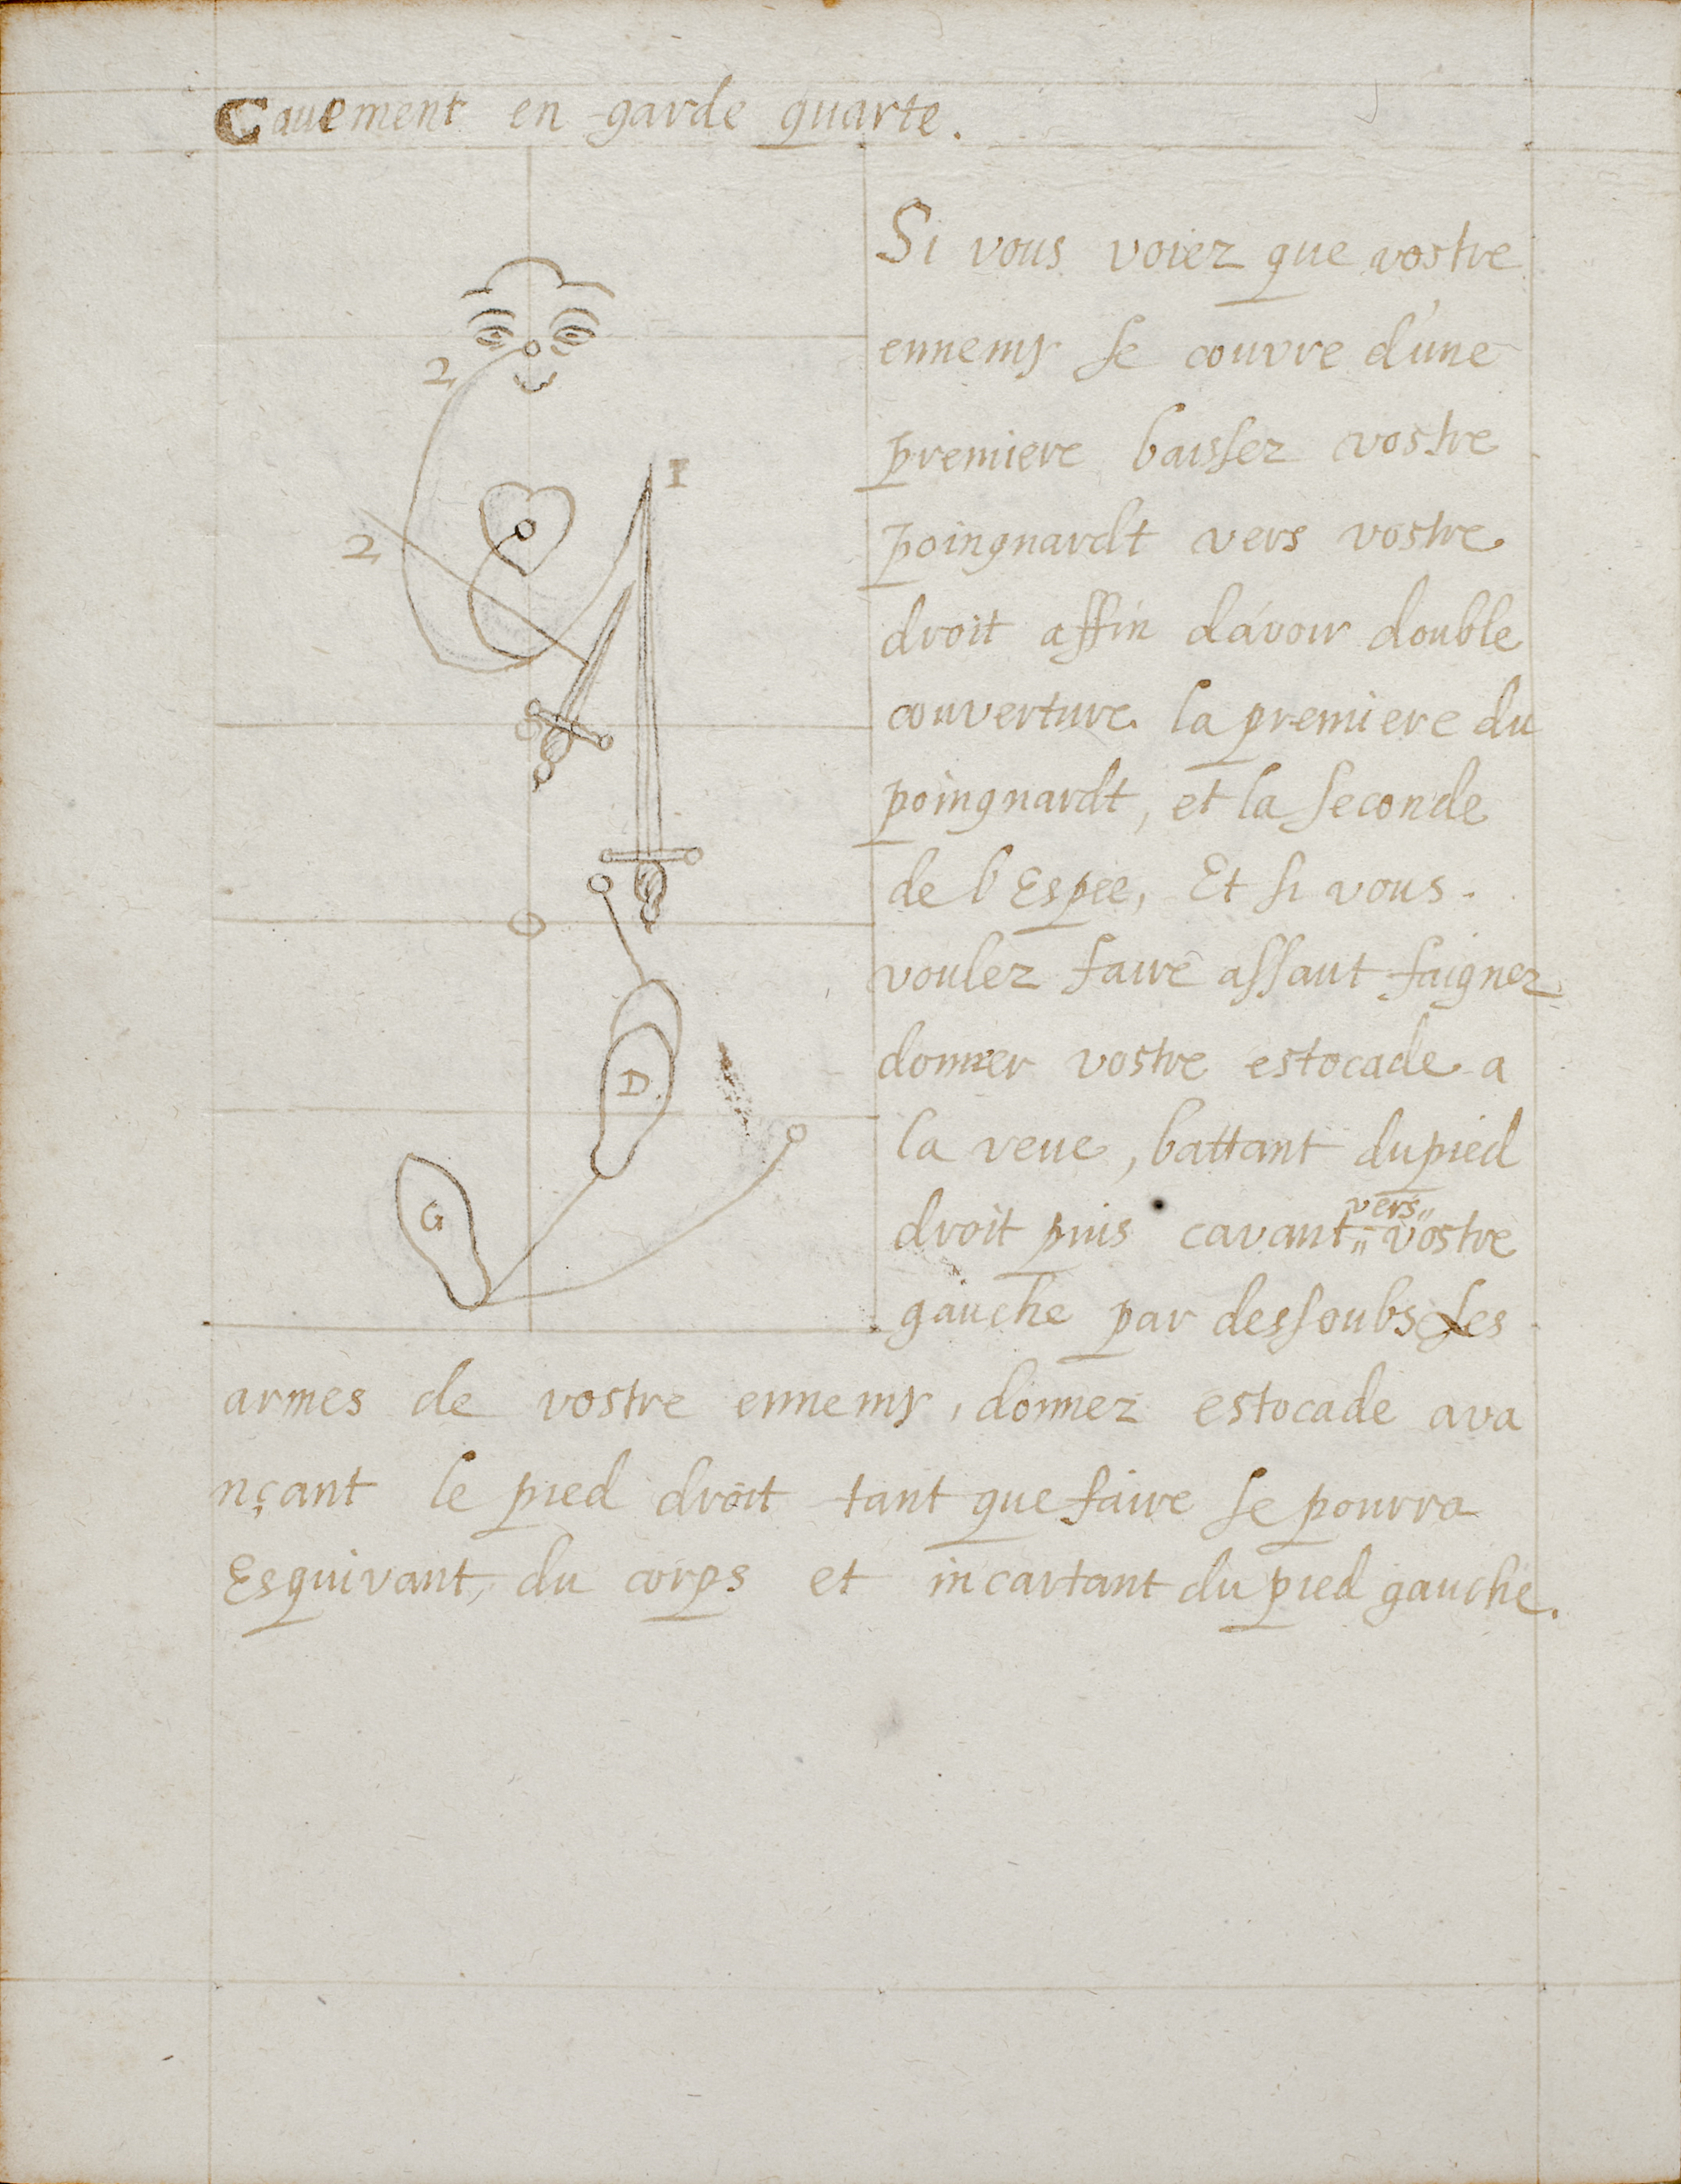 Cauement en garde quarte.
2
1
2
D
G
Si vous voiez que vostre
ennemy se couvre d'une
premiere baissez vostre
poingnardt vers vostre
droit affin d'avoir double
couverture la premiere du
poingnardt, et la seconde
de l'Espee, Et si vous
voulez faire assaut faignez
donner vostre estocade a
la veue, battant du pied
vers
droit puis cavant vostre
gauche par dessoubs les
armes de vostre ennemy, donnez estocade ava
nçant le pied droit tant que faire se pourra
Esquivant, du corps et incartant du pied gauche.